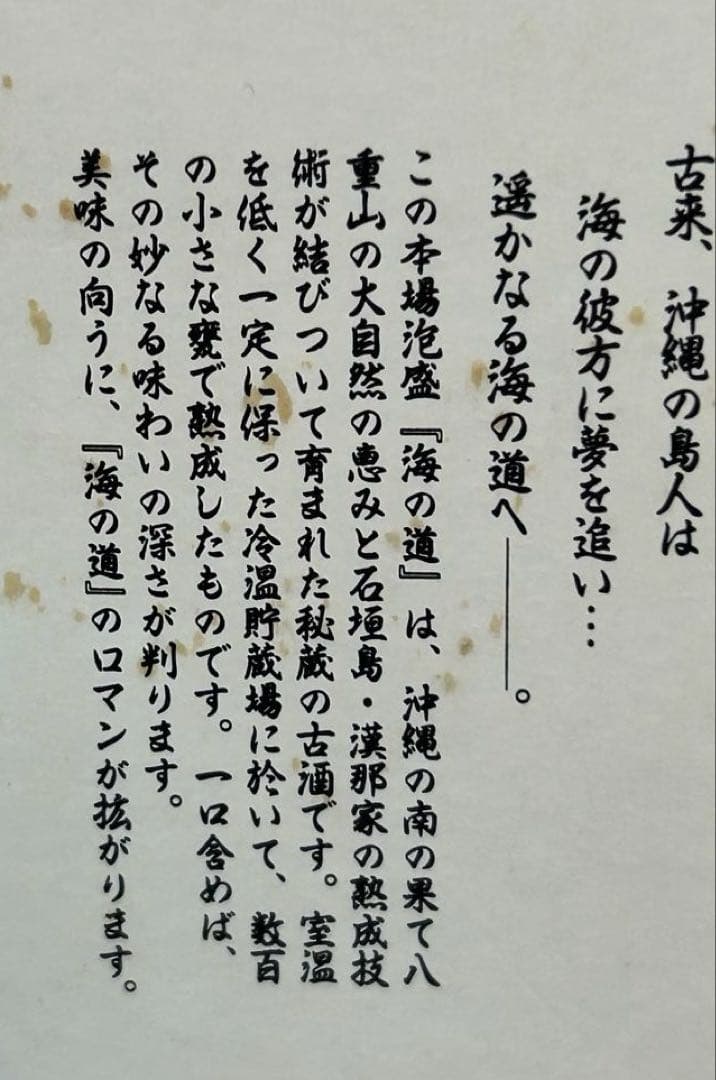 古来、沖縄の島人は
海の彼方に夢を追い…
遥かなる海の道へ―――。
この本場泡盛『海の道』は、沖縄の南の果て八
重山の大自然の恵みと石垣島・漢那家の熟成技
術が結びついて育まれた秘蔵の古酒です。室温
を低く一定に保った冷温貯蔵場に於いて、数百
の小さな甕で熟成したものです。一口含めば、
その妙なる味わいの深さが判ります。
美味の向うに、『海の道』のロマンが拡がります。